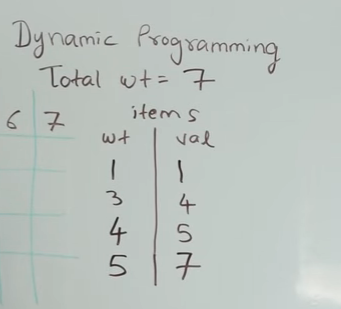 Dynamic Programming
Total wt = 7
6 7
items
wt val
1 1
3 4
4 5
5 7